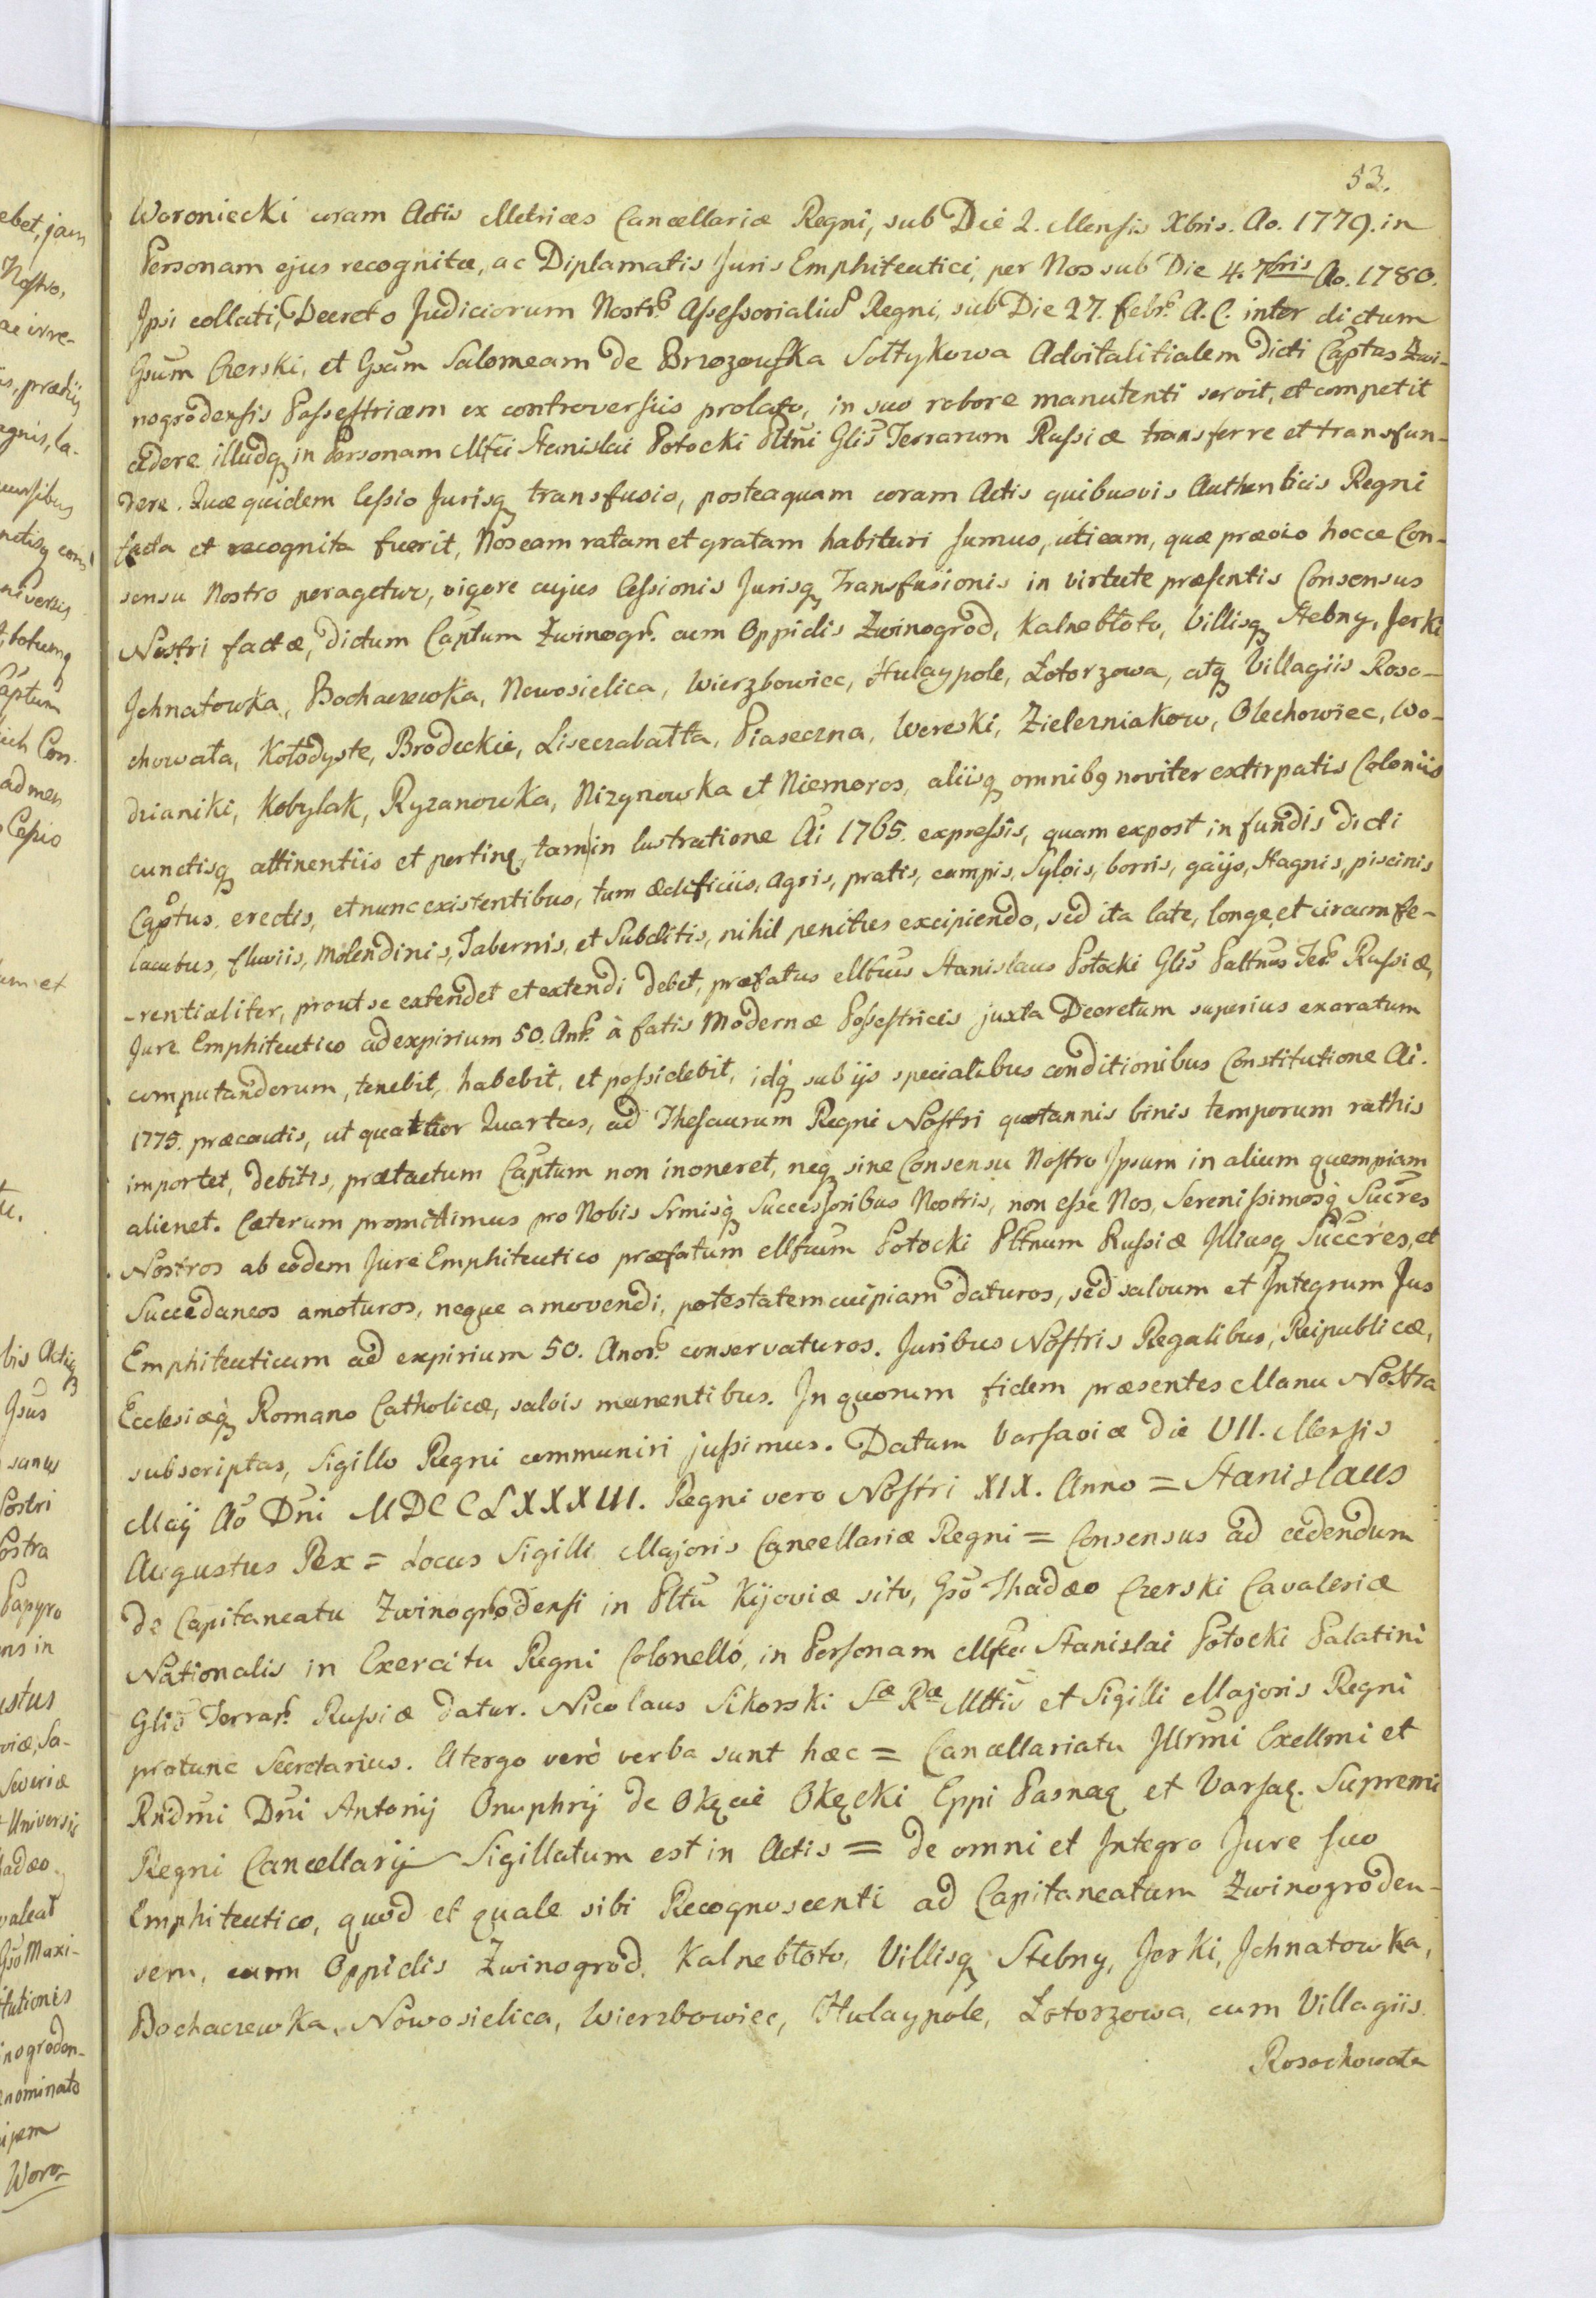 53.
Woroniecki coram Actis Metrices Cancellariæ Regni, sub Die 2. Mensis Xbris. Ao. 1779. in
Personam ejus recognitæ, ac Diplamatis Juris Emphiteutici, per Nos sub Die 4. 7bris Ao. 1780.
Ipsi collati, Decreto Judiciorum Nostr. Assessorialiu Regni, sub Die 27. Febr. A. C. inter dictum
Gsum Czerski, et Gsam Salomeam de Brzozowska Sołtykowa Advitalitialem dicti Capttus Zwi-
nogrodensis Possestricem ex controversiis prolato, in suo robore manutenti servit, et competit
cedere illudq in Personam Mfci Stanislai Potocki Pltni Glis Terrarum Russiæ transferre et transfun-
dere. Quæ quidem Cessio Jurisq transfusio, posteaquam coram Actis quibusvis Authenticis Regni
facta et recognita fuerit, Nos eam ratam et gratam habituri sumus, uti eam, quæ prævio hocce Con-
sensu Nostro peragetur, vigore cujus Cessionis Jurisq Transfusionis in virtute præsentis Consensus
Nostri factæ, dictum Captum Zwinogr. cum Oppidis Zwinogrod, Kalnebłoto, Villisq Stebny, Jerki
Jchnatowka, Bochaczewka, Nowosielica, Wierzbowiec, Hulaypole, Łotorzowa, atq Villagiis Roso-
chowata, Kołodyste, Brodeckie, Liseczabałta, Piaseczna, Wereski, Zielezniakow, Olechowiec, Wo-
dzianiki, Kobylak, Ryzanowka, Nizynowka et Niemoros, aliisq omnibq noviter extirpatis Coloniis
cunctisq attinentiis et pertinq, tam in lustratione Ai 1765. expressis, quam expost in fundis dicti
Captus. erectis, et nunc existentibus, tum ædificiis, agris, pratis, campis, Sylvis, borris, gaijs, Stagnis, piscinis
lacubus, fluviis, Molendinis, Tabernis, et Subditis, nihil penitus excipiendo, sed ita late, longe, et circumfe-
-rentialiter, prout se extendet et extendi debet, præfatus Mfcus Stanislaus Potocki Glis Paltnus Ter. Russiæ,
Jure Emphiteutico ad expirium 50. An. à fatis Modernæ Possestricis juxta Decretum superius exaratum
computandorum, tenebit, habebit, et possidebit, idq sub ijs specialibus conditionibus Constitutione Ai.
1775. præcautis, ut quattuor Quartas, ad Thesaurum Regni Nostri quotannis binis temporum rathis
importet, debitis, prætactum Captum non inoneret, neq sine Consensu Nostro Ipsum in alium quempiam
alienet. Cæterum promittimus pro Nobis Srmisq Successoribus Nostris, non esse Nos, Serenissimosq Sucres
Nostros ab eodem Jure Emphiteutico præfatum Mfcum Potocki Pltnum Russiæ Illiusq Succres, et
Succedaneos amoturos, neque amovendi, potestatem cuipiam daturos, sed salvum et Integrum Jus
Emphiteuticum ad expirium 50. Anor. conservaturos. Juribus Nostris Regalibus, Reipublicæ,
Ecclesiæq Romano Catholicæ, salvis manentibus. In quorum fidem præsentes Manu Nostra
subscriptas, Sigillo Regni communiri jussimus. Datum Varsaviæ die VII. Mensis
Maij Ao Dni MDCCLXXXIII. Regni vero Nostri XIX. Anno = Stanislaus
Augustus Rex = Locus Sigilli Majoris Cancellariæ Regni = Consensus ad cedendum
de Capitaneatu Zwinogrodensi in Pltu Kijoviæ sito, Gso Thadæo Czerski Cavaleriæ
Nationalis in Exercitu Regni Colonello, in Personam Mfci Stanislai Potocki Palatini
Glis Terrar. Russiæ datur. Nicolaus Sikorski Sæ Ræ Mttis et Sigilli Majoris Regni
protunc Secretarius. A tergo verò verba sunt hæc = Cancellariatu Illrmi Exellmi et
Rndmi Dni Antonij Onuphrij de Okęcie Okęcki Eppi Pasnaq et Varsaq. Supremi
Regni Cancellarij Sigillatum est in Actis = de omni et Integro Jure suo
Emphiteutico, quod et quale sibi Recognoscenti ad Capitaneatum Zwinogroden-
sem, cum Oppidis Zwinogrod, Kalnebłoto, Villisq Stebny, Jerki, Jchnatowka,
Bochaczewka, Nowosielica, Wierzbowiec, Hulaypole, Łotorzowa, cum Villagiis
Rosochowata